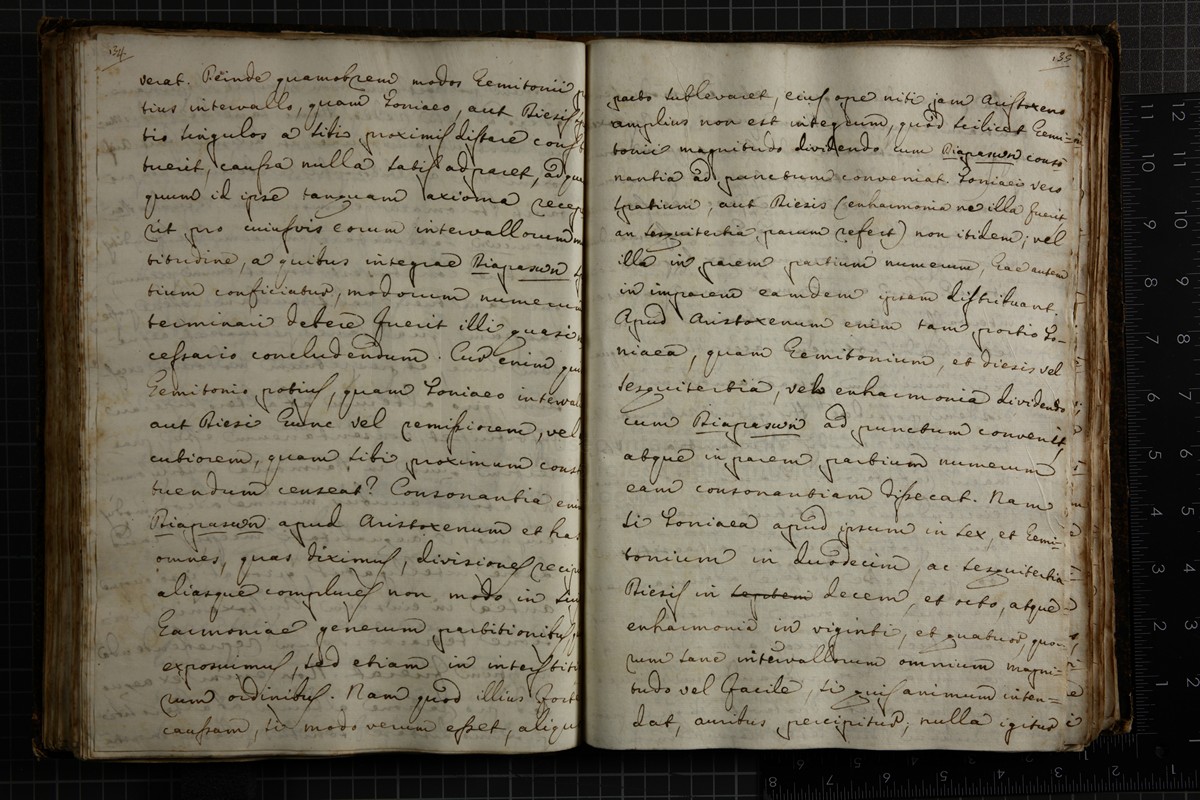 134.
verat. Deinde quamobrem modos Hemitonii
tius intervallo, quam Toniaeo, aut Diesis
tio singulos a sibi proximis distare
tuerit, caussa nulla satis adparet,
quum id ipse tanquam axioma
rit pro cuiusvis eorum intervallorum
titudine, a quibus integrae Diapaswn
tium conficiatur, modorum numerum
terminari debere fuerit illi quasi
cessario concludendum. Cur enim
Hemitonio potius, quam Toniaeo
aut Diesi hunc vel remissiorem, vel
cutiorem, quam sibi proximum
tuendum censeat? Consonantia
Diapaswn apud Aristoxenum et has
omnes, quas diximus, divisiones
aliasque complures non modo in
Harmoniae generum partitionibus,
exposuimus, sed etiam in
rum ordinibus. Nam quod illius
caussam, si modo verum esset,
135
pacto sublevaret, eius ope niti jam Aristoxeno
amplius non est integrum, quod scilicet Hemi=
tonii magnitudo dividendo cum Diapaswn conso
nantia ad punctum conveniat. Toniaeo vero
spatium, aut Diesis (enharmonia ne illa fuerit
an sesquitertia parum refert) non itidem, vel
illa in parem partium numerum, haec autem
in imparem eamdem ipsam distribuant.
Apud Aristoxenum enim tam portio To-
niaea, quam Hemitonium, et diesis vel
sesquitertia, vel enharmonia dividendo
cum Diapaswn ad punctum convenit,
atque in parem partium numerum
eam consonantiam dissecat. Nam
si Toniaea apud ipsum in sex, et Hemi-
tonium in duodecim, ac sesquitertia
Diesis in septem decem, et octo, atque
enharmonia in viginti, et quatuor, quo-
rum sane intervallorum omnium magni-
tudo vel facile, si quis animum inten=
dat, auribus percipitur; nulla igitur